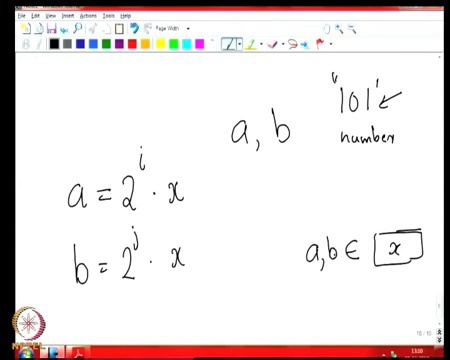 File Edit View Insert Actions Tools Help
Page Width
"101"
number
a, b
a = 2^i · x
b = 2^j · x
a, b ∈ x
NPTEL
13:10